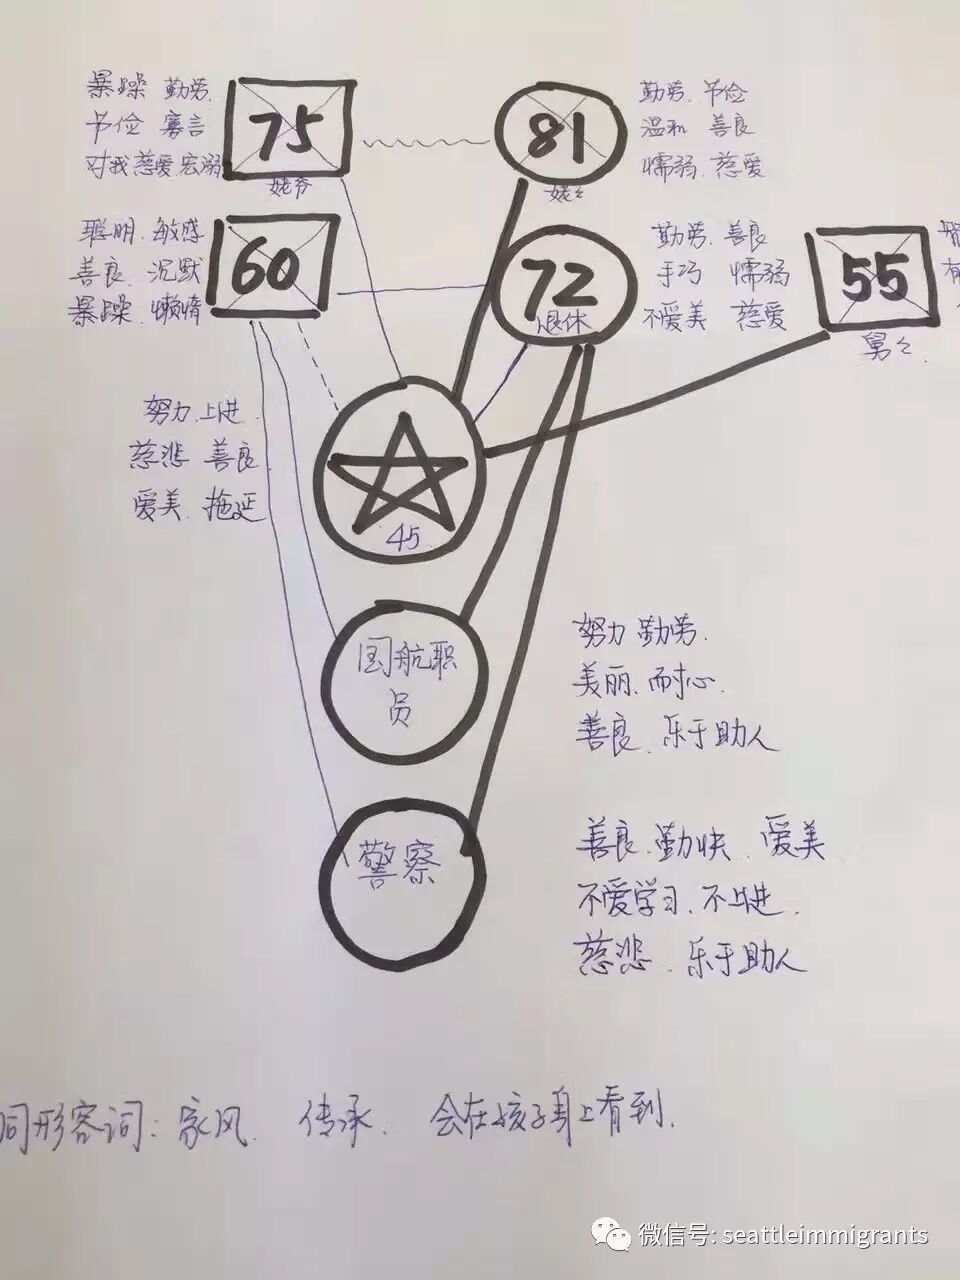 暴躁 勤劳
节俭 寡言
对我慈爱
75
姥爷
81
姥姥
勤劳 节俭
温和 善良
懦弱 慈爱
聪明 敏感
善良 沉默
暴躁 懒惰
60
72
退休
勤劳 善良
手巧 懦弱
不爱美 慈爱
55
舅舅
努力 上进
慈悲 善良
爱美 拖延
45
国航职
员
努力 勤劳
美丽 耐心
善良、乐于助人
警察
善良、勤快、爱美
不爱学习、不上进
慈悲、乐于助人
同形容词：家风、传承、会在孩子身上看到
微信号: seattleimmigrants